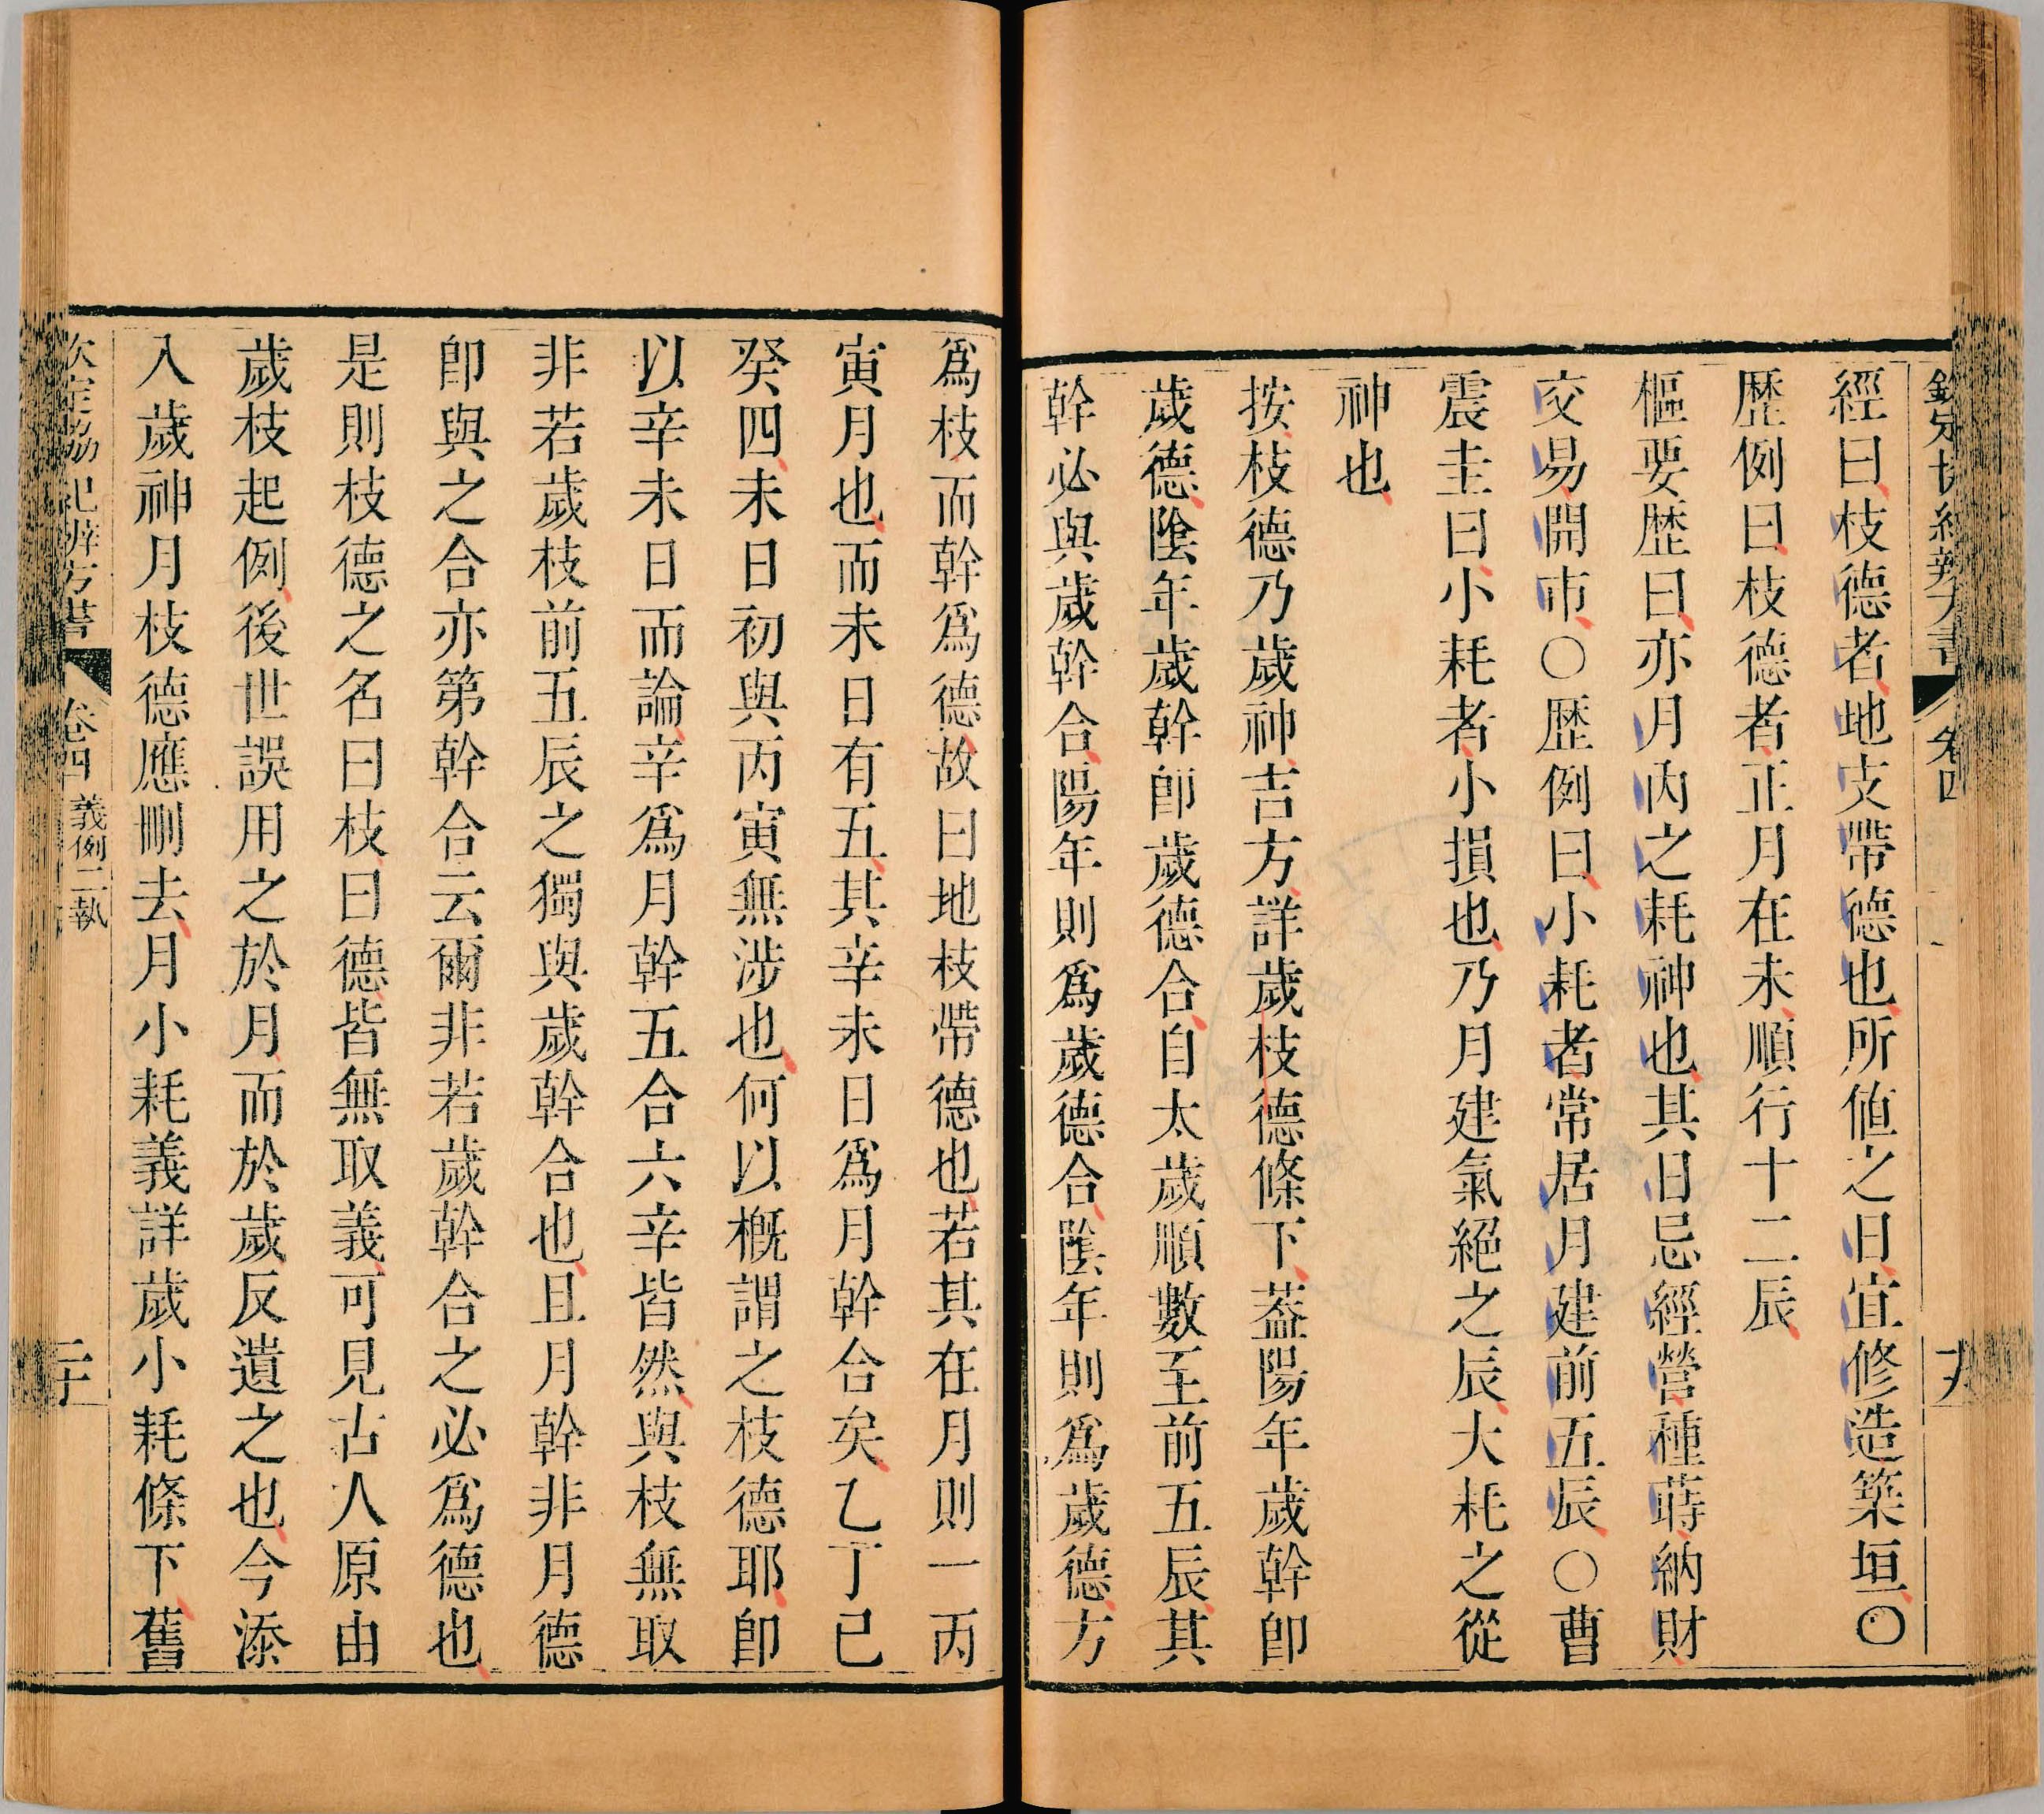 經曰枝德者地支帶德也所值之日宜修造築垣〇
歷例曰枝德者正月在未順行十二辰
樞要歷曰亦月內之耗神也其日忌經營種蒔納財
交易開市〇歷例曰小耗者常居月建前五辰〇曹
震圭曰小耗者小損也乃月建氣絕之辰大耗之從
神也
按枝德乃歲神吉方詳歲枝德條下葢陽年歲幹即
歲德陰年歲幹即歲德合自太歲順數至前五辰其
幹必與歲幹合陽年則爲歲德合陰年則爲歲德方
爲枝而幹爲德故曰地枝帶德也若其在月則一丙
寅月也而未日有五其辛未日爲月幹合矣乙丁己
癸四未日初與丙寅無涉也何以槪謂之枝德耶即
以辛未日而論辛爲月幹五合六辛皆然與枝無取
非若歲枝前五辰之獨與歲幹合也且月幹非月德
即與之合亦第幹合云爾非若歲幹合之必爲德也
是則枝德之名曰枝曰德皆無取義可見古人原由
歲枝起例後世誤用之於月而於歲反遺之也今添
入歲神月枝德應刪去月小耗義詳歲小耗條下舊
卷四 義例二執 二十